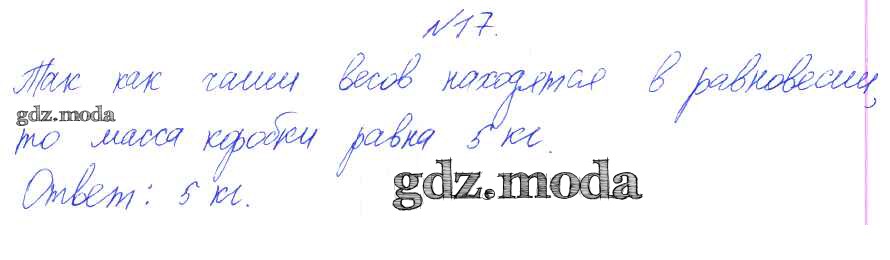 №17.
Так как чаши весов находятся в равновесии,
gdz.moda
то масса коробки равна 5 кг.
Ответ: 5 кг.
gdz.moda